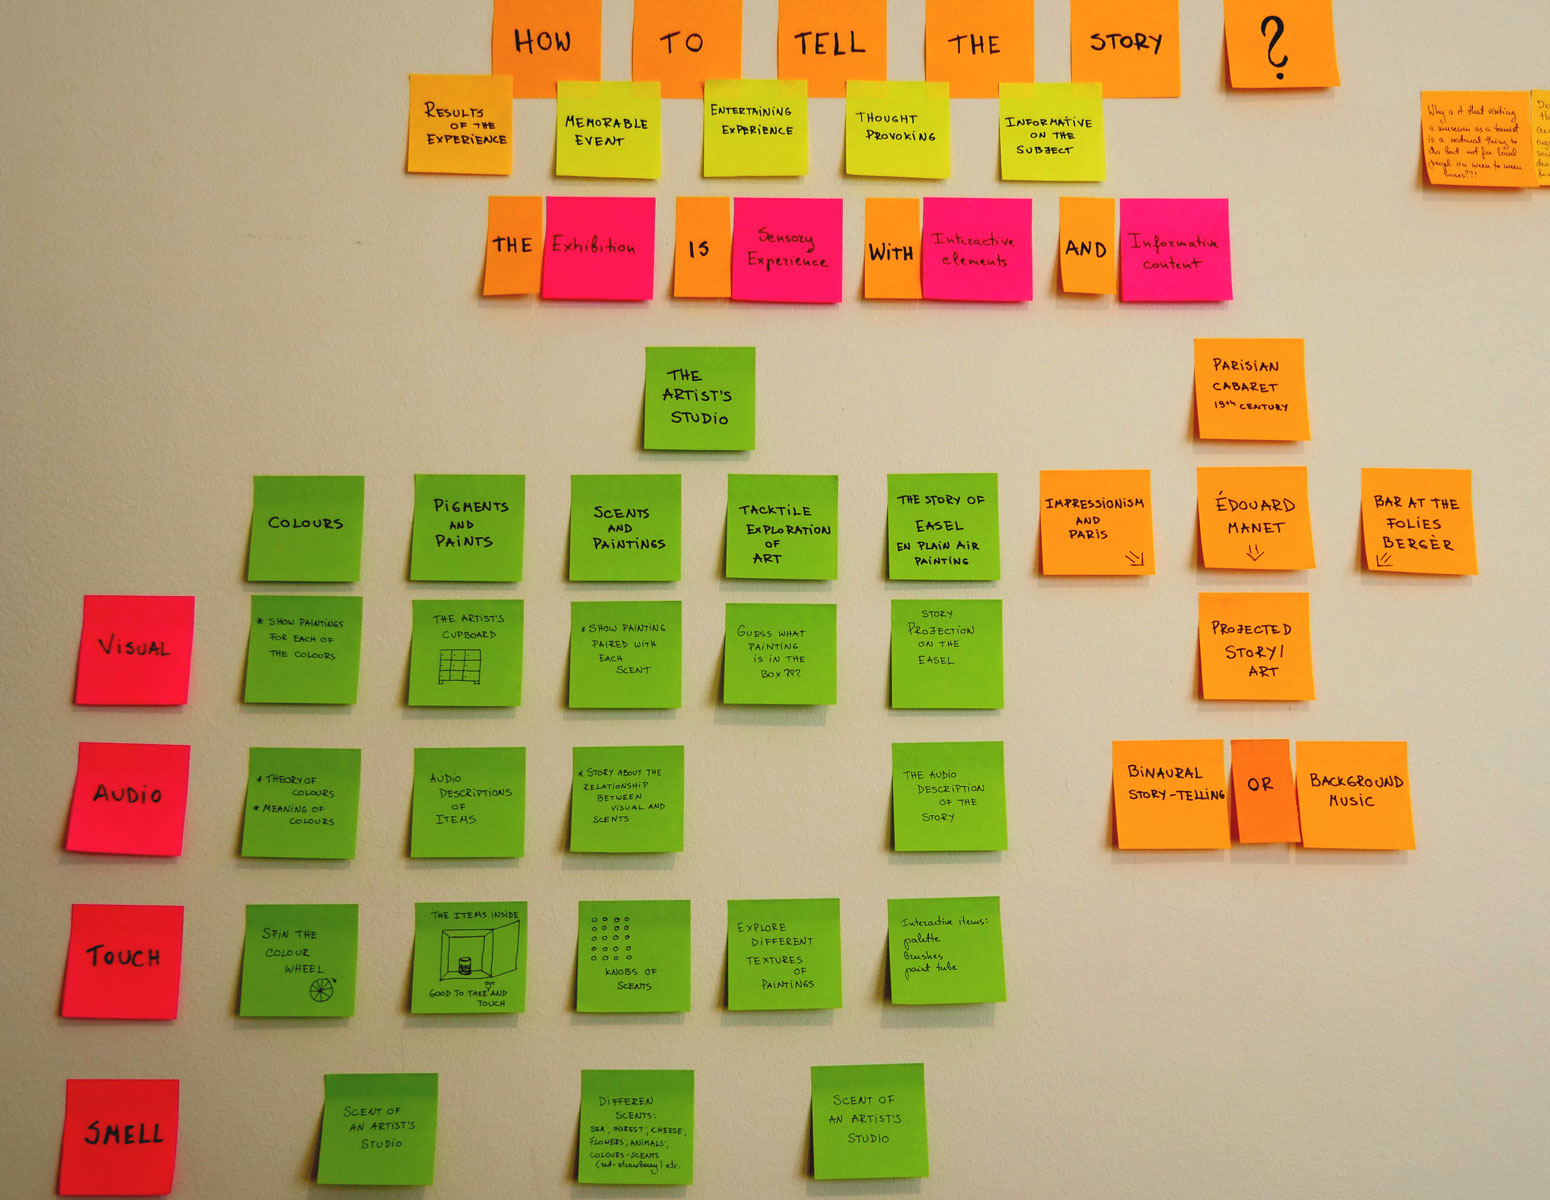 HOW TO TELL THE STORY ?
RESULTS
OF THE
EXPERIENCE
MEMORABLE
EVENT
ENTERTAINING
EXPERIENCE
THOUGHT
PROVOKING
INFORMATIVE
ON THE
SUBJECT
Why is it that visiting
a museum as a tourist
is a natural thing to
do but not for local
on week to week
bases??!
THE
Exhibition
IS
Sensory
Experience
WITH
Interactive
elements
AND
Informative
content
THE
ARTIST'S
STUDIO
PARISIAN
CABARET
19th CENTURY
COLOURS
PIGMENTS
AND
PAINTS
SCENTS
AND
PAINTINGS
TACKTILE
EXPLORATION
OF
ART
THE STORY OF
EASEL
EN PLAIN AIR
PAINTING
IMPRESSIONISM
AND
PARIS
ÉDOUARD
MANET
BAR AT THE
FOLIES
BERGÈR
VISUAL
* SHOW PAINTINGS
FOR EACH OF
THE COLOURS
THE ARTIST'S
CUPBOARD
* SHOW PAINTING
PAIRED WITH
EACH
SCENT
GUESS WHAT
PAINTING
IS IN THE
BOX ???
STORY
PROJECTION
ON THE
EASEL
PROJECTED
STORY/
ART
AUDIO
* THEORY OF
COLOURS
* MEANING OF
COLOURS
AUDIO
DESCRIPTIONS
OF
ITEMS
* STORY ABOUT THE
RELATIONSHIP
BETWEEN
VISUAL AND
SCENTS
THE AUDIO
DESCRIPTION
OF THE
STORY
BINAURAL
STORY-TELLING
OR
BACKGROUND
MUSIC
TOUCH
SPIN THE
COLOUR
WHEEL
THE ITEMS INSIDE
GOOD TO TAKE OUT AND
TOUCH
KNOBS OF
SCENTS
EXPLORE
DIFFERENT
TEXTURES
OF
PAINTINGS
Interactive items:
palette
brushes
paint tube
SMELL
SCENT OF
AN ARTIST'S
STUDIO
DIFFEREN
SCENTS:
SEA, FOREST, CHEESE,
FLOWERS, ANIMALS,
COLOURS-SCENTS
(red-strawberry) etc.
SCENT OF
AN ARTIST'S
STUDIO